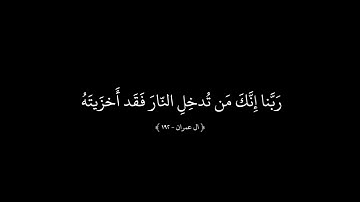 رَبَّنا إِنَّكَ مَن تُدخِلِ النّارَ فَقَد أَخزَيتَهُ
﴿ ال عمران - ١٩٢ ﴾